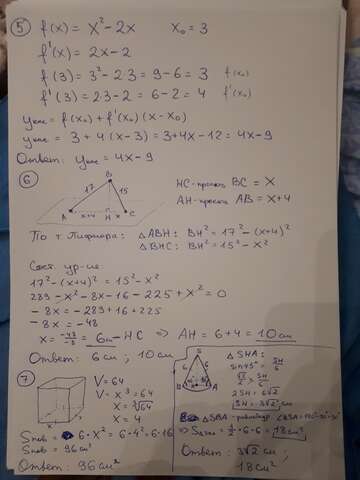 5 f(x) = x² - 2x x₀ = 3
f'(x) = 2x - 2
f(3) = 3² - 2·3 = 9 - 6 = 3 f(x₀)
f'(3) = 2·3 - 2 = 6 - 2 = 4 f'(x₀)
yкас = f(x₀) + f'(x₀)(x - x₀)
yкас = 3 + 4(x - 3) = 3 + 4x - 12 = 4x - 9
Ответ: yкас = 4x - 9
6
B
17 15
A x+4 H x C
HC - проекц BC = x
AH - проекц AB = x+4
По т Пифагора: △ABH: BH² = 17² - (x+4)²
△BHC: BH² = 15² - x²
Сост. ур-ие:
17² - (x+4)² = 15² - x²
289 - x² - 8x - 16 - 225 + x² = 0
-8x = -289 + 16 + 225
-8x = -48
x = -48/-8 = 6см - HC ⇒ AH = 6+4 = 10см
Ответ: 6см; 10см
7
V = 64
V = x³ = 64
x = ∛64
x = 4
Sпов = 6·x² = 6·4² = 6·16
Sпов = 96см²
Ответ: 96см²
S
6 6
B H A
△SHA:
sin45° = SH/6
√2/2 = SH/6
2SH = 6√2
SH = 3√2 см
△SBA - равнобедр.
⇒ S = 1/2·6·6 = 18см²
Ответ: 3√2 см;
18см²